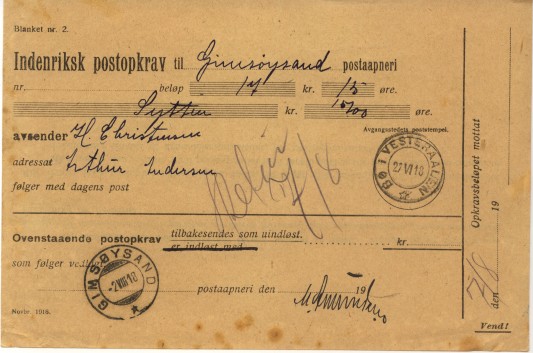 Blanket nr. 2.
Indenriksk postopkrav til Gimsøysand postaapneri
nr. beløp 17 kr. 15 øre.
Sytten kr. øre.
avsender H. Christensen
Avgangsstedets poststempel.
adressat Arthur Andersen
BØ I VESTERAALEN
27 VI 18
følger med dagens post
7/8
Ovenstaaende postopkrav tilbakesendes som uindløst.
er indløst med kr.
som følger vedlagt
GIMSØYSAND
2 VIII 18
postaapneri den 19
Norie. 1918.
Opkravsbeløpet mottat
den 7/8 19
Vend!